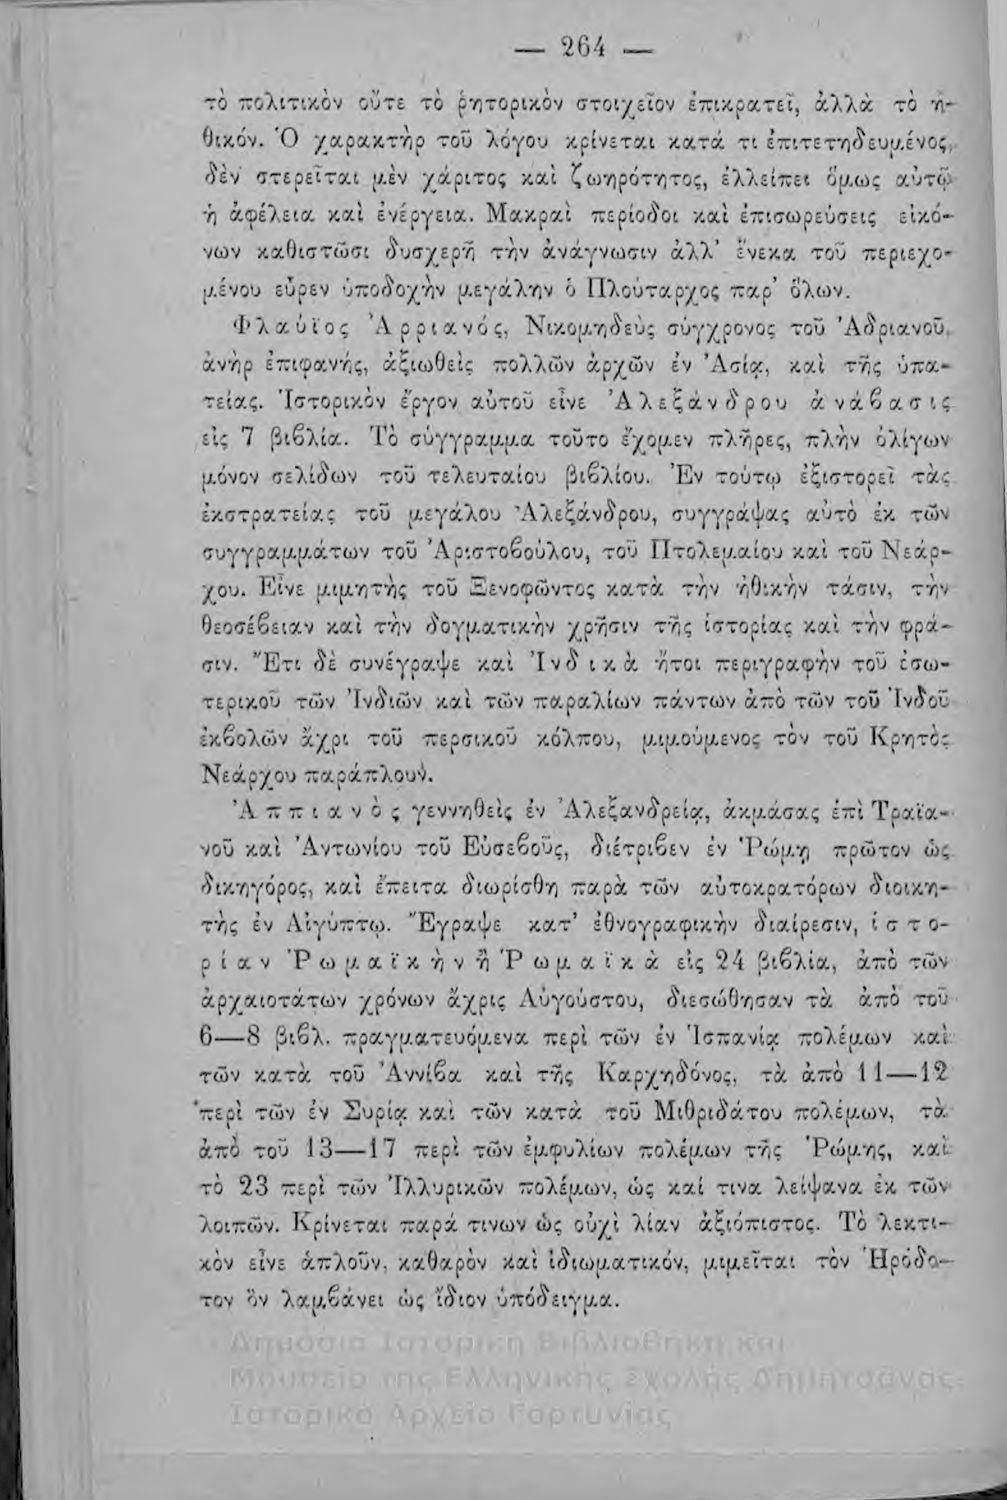 — 264 —
τὸ πολιτικὸν οὔτε τὸ ῥητορικὸν στοιχεῖον ἐπικρατεῖ, ἀλλὰ τὸ ἠ-
θικόν. Ὁ χαρακτὴρ τοῦ λόγου κρίνεται κατά τι ἐπιτετηδευμένος,
δὲν στερεῖται μὲν χάριτος καὶ ζωηρότητος, ἐλλείπει ὅμως αὐτῷ
ἡ ἀφέλεια καὶ ἐνέργεια. Μακραὶ περίοδοι καὶ ἐπισωρεύσεις εἰκό-
νων καθιστῶσι δυσχερῆ τὴν ἀνάγνωσιν ἀλλ’ ἕνεκα τοῦ περιεχο-
μένου εὗρεν ὑποδοχὴν μεγάλην ὁ Πλούταρχος παρ’ ὅλων.
Φλαύϊος Ἀρριανός, Νικομηδεὺς σύγχρονος τοῦ Ἀδριανοῦ,
ἀνὴρ ἐπιφανής, ἀξιωθεὶς πολλῶν ἀρχῶν ἐν Ἀσίᾳ, καὶ τῆς ὑπα-
τείας. Ἱστορικὸν ἔργον αὐτοῦ εἶνε Ἀλεξάνδρου ἀνάβασις
εἰς 7 βιβλία. Τὸ σύγγραμμα τοῦτο ἔχομεν πλῆρες, πλὴν ὀλίγων
μόνον σελίδων τοῦ τελευταίου βιβλίου. Ἐν τούτῳ ἐξιστορεῖ τὰς
ἐκστρατείας τοῦ μεγάλου Ἀλεξάνδρου, συγγράψας αὐτὸ ἐκ τῶν
συγγραμμάτων τοῦ Ἀριστοβούλου, τοῦ Πτολεμαίου καὶ τοῦ Νεάρ-
χου. Εἶνε μιμητὴς τοῦ Ξενοφῶντος κατὰ τὴν ἠθικὴν τάσιν, τὴν
θεοσέβειαν καὶ τὴν δογματικὴν χρῆσιν τῆς ἱστορίας καὶ τὴν φρά-
σιν. Ἔτι δὲ συνέγραψε καὶ Ἰνδικὰ ἤτοι περιγραφὴν τοῦ ἐσω-
τερικοῦ τῶν Ἰνδιῶν καὶ τῶν παραλίων πάντων ἀπὸ τῶν τοῦ Ἰνδοῦ
ἐκβολῶν ἄχρι τοῦ περσικοῦ κόλπου, μιμούμενος τὸν τοῦ Κρητὸς
Νεάρχου παράπλουν.
Ἀππιανὸς γεννηθεὶς ἐν Ἀλεξανδρείᾳ, ἀκμάσας ἐπὶ Τραϊα-
νοῦ καὶ Ἀντωνίου τοῦ Εὐσεβοῦς, διέτριβεν ἐν Ῥώμῃ πρῶτον ὡς
δικηγόρος, καὶ ἔπειτα διωρίσθη παρὰ τῶν αὐτοκρατόρων διοικη-
τὴς ἐν Αἰγύπτῳ. Ἔγραψε κατ’ ἐθνογραφικὴν διαίρεσιν, ἱστο-
ρίαν Ῥωμαϊκὴν ἢ Ῥωμαϊκὰ εἰς 24 βιβλία, ἀπὸ τῶν
ἀρχαιοτάτων χρόνων ἄχρις Αὐγούστου, διεσώθησαν τὰ ἀπὸ τοῦ
6—8 βιβλ. πραγματευόμενα περὶ τῶν ἐν Ἱσπανίᾳ πολέμων καὶ
τῶν κατὰ τοῦ Ἀννίβα καὶ τῆς Καρχηδόνος, τὰ ἀπὸ 11—12
περὶ τῶν ἐν Συρίᾳ καὶ τῶν κατὰ τοῦ Μιθριδάτου πολέμων, τὰ
ἀπὸ τοῦ 13—17 περὶ τῶν ἐμφυλίων πολέμων τῆς Ῥώμης, καὶ
τὸ 23 περὶ τῶν Ἰλλυρικῶν πολέμων, ὡς καί τινα λείψανα ἐκ τῶν
λοιπῶν. Κρίνεται παρά τινων ὡς οὐχὶ λίαν ἀξιόπιστος. Τὸ λεκτι-
κὸν εἶνε ἁπλοῦν, καθαρὸν καὶ ἰδιωματικόν, μιμεῖται τὸν Ἡρόδο-
τον ὃν λαμβάνει ὡς ἴδιον ὑπόδειγμα.
Δημόσια Ιστορική Βιβλιοθήκη και
Μουσείο της Ελληνικής Σχολής Δημητσάνας
Ιστορικό Αρχείο Γορτυνίας